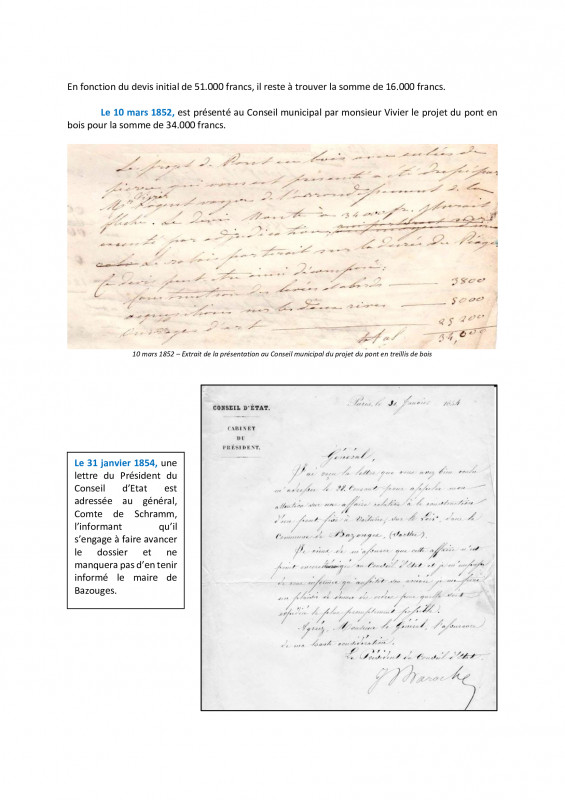 En fonction du devis initial de 51.000 francs, il reste à trouver la somme de 16.000 francs.
Le 10 mars 1852, est présenté au Conseil municipal par monsieur Vivier le projet du pont en
bois pour la somme de 34.000 francs.
Le projet de Pont en bois
pierre qui vous est présenté a été dressé par
Mr voyer de l'arrondissement de la
flèche. Le devis monte à 34
par adjudication
Le
Ce devis peut être ainsi décomposé,
3800
sur les deux rives 5000
ouvrages d'art 25200
total 34,000
10 mars 1852 – Extrait de la présentation au Conseil municipal du projet du pont en treillis de bois
Paris, le 31 Janvier 1854
CONSEIL D'ÉTAT.
CABINET
DU
PRÉSIDENT.
Général,
J'ai reçu la lettre que vous avez bien voulu
m'adresser le 21 Courant pour appeler mon
attention sur une affaire relative à la construction
d'un pont fixe à sur le Loir, dans la
Commune de Bazouges, (Sarthe).
Je viens de m'assurer que cette affaire n'est
point au Conseil d'Etat et je m'empresse
de vous informer qu'aussitôt son arrivée je me ferai
un plaisir de donner des ordres pour qu'elle soit
expédiée le plus promptement possible.
Agréez, Monsieur le Général, l'assurance
de ma haute considération.
Le Président du Conseil d'Etat,
J Baroche
Le 31 janvier 1854, une
lettre du Président du
Conseil d'Etat est
adressée au général,
Comte de Schramm,
l'informant qu'il
s'engage à faire avancer
le dossier et ne
manquera pas d'en tenir
informé le maire de
Bazouges.